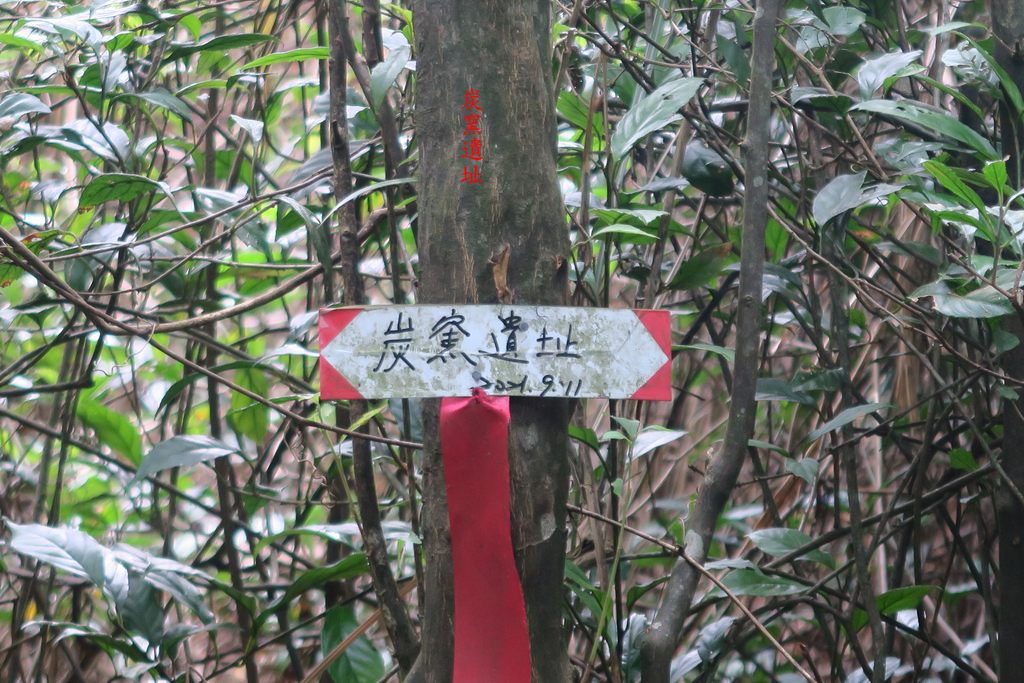 炭窯遺址
炭窯遺址
2021.9.11